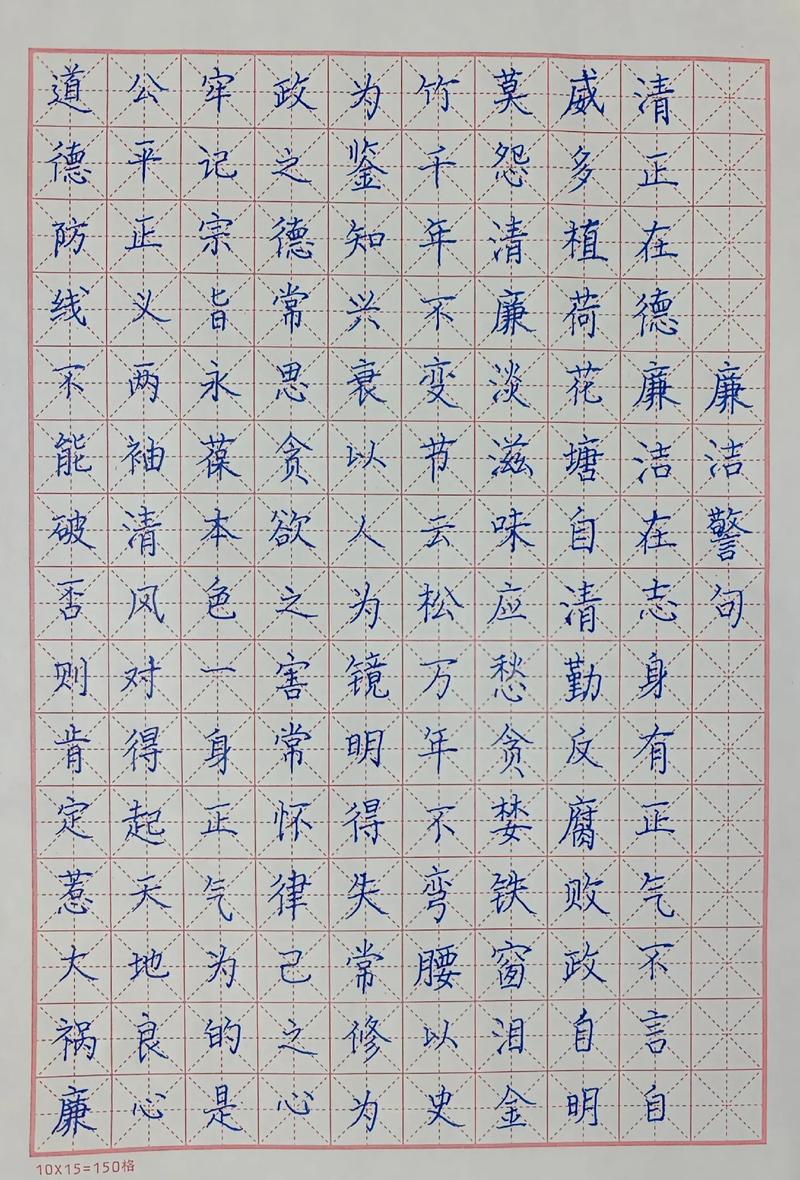 廉洁警句
清正在德廉洁在志身有正气不言自
威多植荷花塘自清勤反腐败政自明
莫怨清廉淡滋味应愁贪婪铁窗泪金
竹千年不变节云松万年不弯腰以史
为鉴知兴衰以人为镜明得失常修为
政之德常思贪欲之害常怀律己之心
牢记宗旨永葆本色一身正气为的是
公平正义两袖清风对得起天地良心
道德防线不能破否则肯定惹大祸廉
10X15=150格